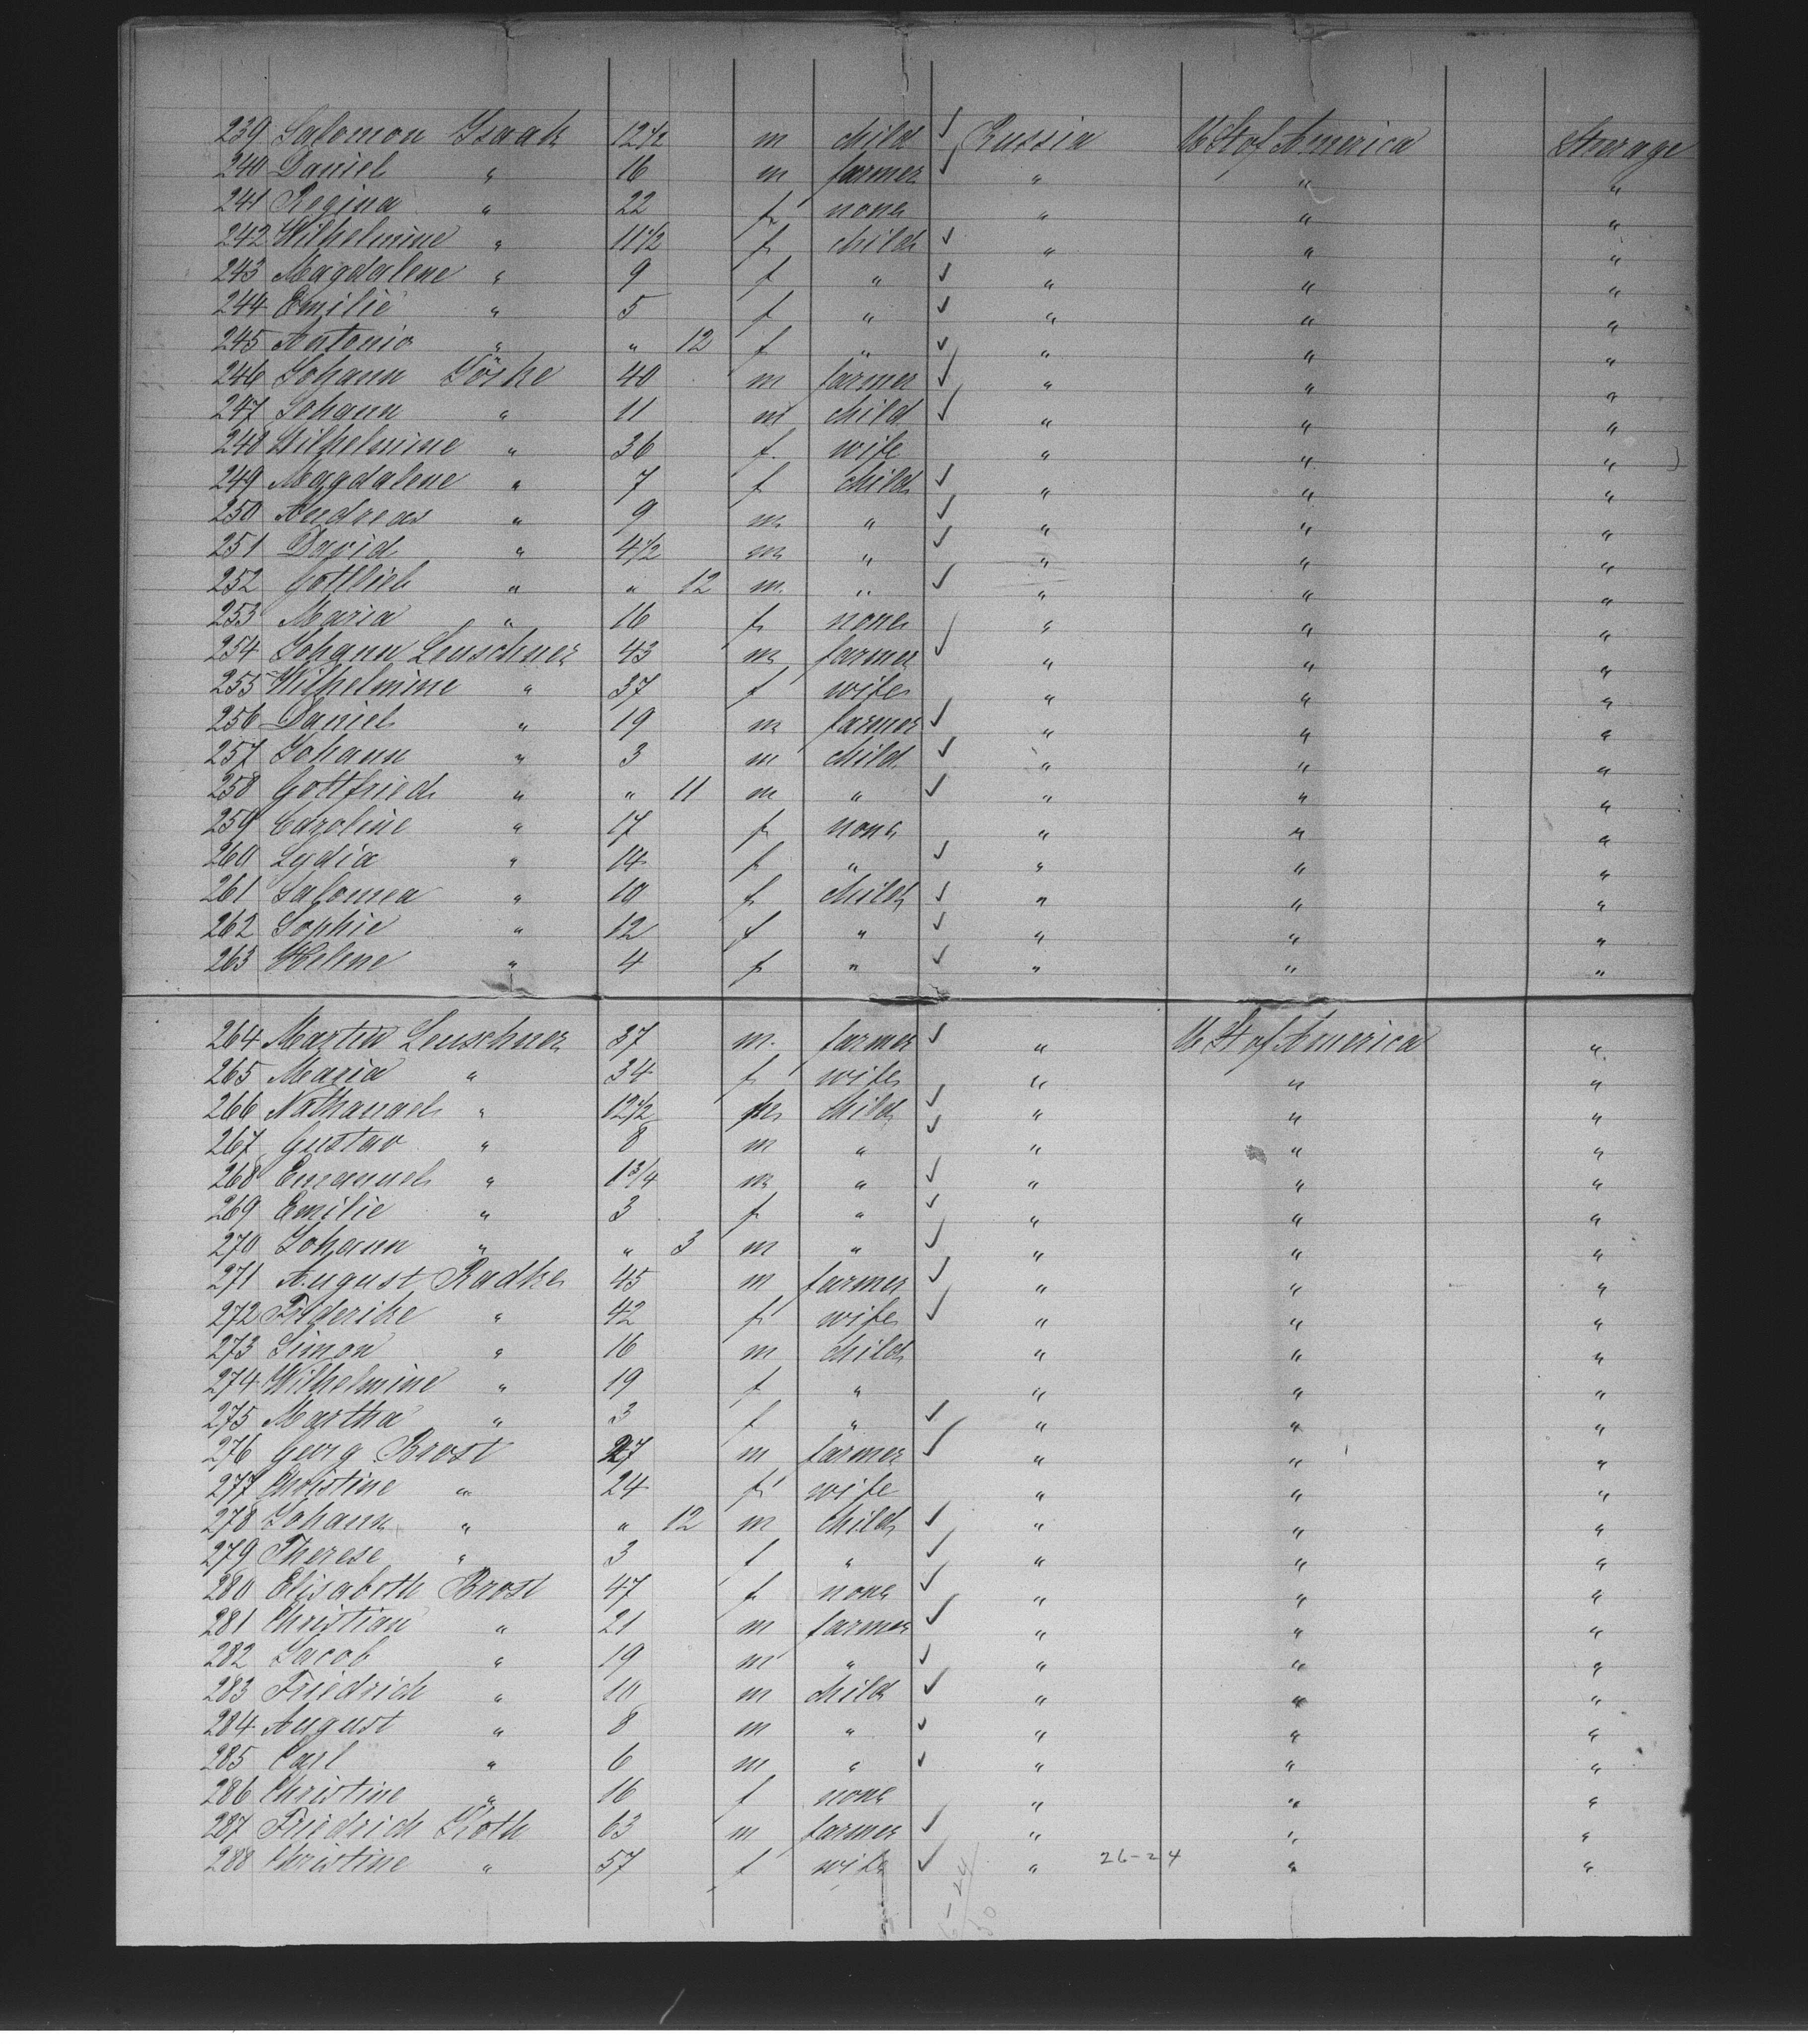 239 Salomon Isaak 12 1/2 m child ✓ Russia U St of America Steerage
240 Daniel " 16 m farmer ✓ " " "
241 Regina " 22 f none " " "
242 Wilhelmine " 11 1/2 f child ✓ " " "
243 Magdalene " 9 f " ✓ " " "
244 Emilie " 5 f " ✓ " " "
245 Antonio " " 12 f " ✓ " " "
246 Johann Göske 40 m farmer ✓ " " "
247 Johann " 11 m child ✓ " " "
248 Wilhelmine " 36 f. wife " " "
249 Magdalene " 7 f child ✓ " " "
250 Andreas " 9 m " ✓ " " "
251 David " 4 1/2 m " ✓ " " "
252 Gottlieb " " 12 m. " ✓ " " "
253 Maria " 16 f none " " "
254 Johann Leuschner 43 m farmer ✓ " " "
255 Wilhelmine " 37 f wife " " "
256 Daniel " 19 m farmer ✓ " " "
257 Johann " 3 m child ✓ " " "
258 Gottfried " " 11 m " ✓ " " "
259 Caroline " 17 f none " " "
260 Lydia " 14 f " ✓ " " "
261 Salomea " 10 f child ✓ " " "
262 Sophie " 12 f " ✓ " " "
263 Helene " 4 f " ✓ " " "
264 Martin Leuschner 37 m. farmer ✓ " U St of America "
265 Maria " 34 f wife " " "
266 Nathanael " 12 1/2 m child ✓ " " "
267 Gustav " 8 m " ✓ " " "
268 Emanuel " 1 3/4 m " ✓ " " "
269 Emilie " 3 f " ✓ " " "
270 Johann " " 3 m " ✓ " " "
271 August Radke 45 m farmer ✓ " " "
272 Friderike " 42 f wife ✓ " " "
273 Simon " 16 m child " " "
274 Wilhelmine " 19 f " " " "
275 Martha " 3 f " ✓ " " "
276 Georg Brost 27 m farmer ✓ " " "
277 Christine " 24 f wife " " "
278 Johann " " 12 m child ✓ " " "
279 Therese " 3 f " ✓ " " "
280 Elisabeth Brost 47 f none ✓ " " "
281 Christian " 21 m farmer ✓ " " "
282 Jacob " 19 m " ✓ " " "
283 Friedrich " 10 m child ✓ " " "
284 August " 8 m " ✓ " " "
285 Carl " 6 m " ✓ " " "
286 Christine " 16 f none " " "
287 Friedrich Groth 63 m farmer ✓ " " "
288 Christine " 57 f wife ✓ " 26-24 " "